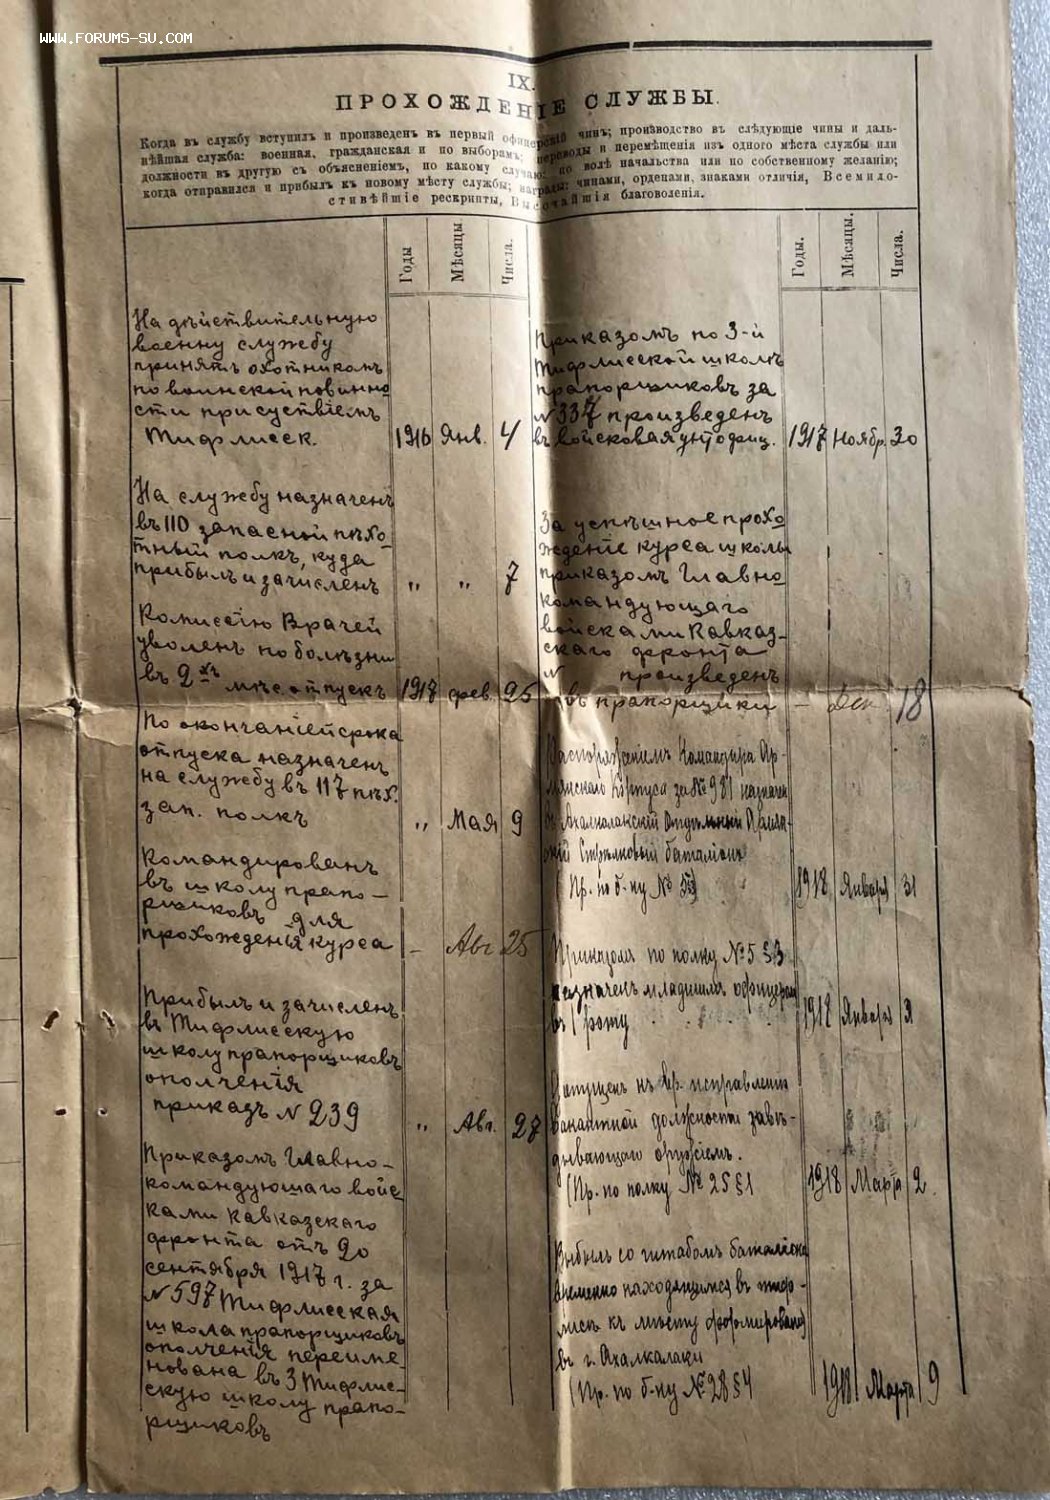 WWW.FORUMS-SU.COM
IX.
ПРОХОЖДЕНІЕ СЛУЖБЫ.
Когда въ службу вступилъ и произведенъ въ первый офицерскій чинъ; производство въ слѣдующіе чины и даль-
нѣйшая служба: военная, гражданская и по выборамъ; переводы и перемѣщенія изъ одного мѣста службы или
должности въ другую съ объясненіемъ, по какому случаю: по волѣ начальства или по собственному желанію;
когда отправился и прибылъ къ новому мѣсту службы; награды: чинами, орденами, знаками отличія, Всемило-
стивѣйшіе рескрипты, Высочайшія благоволенія.
Годы
Мѣсяцы
Числа.
На дѣйствительную
военну службу
принятъ охотникомъ
по воинской повинно
сти присуствіемъ
Тифлисск. 1916 Янв. 4
На службу назначенъ
въ 110 запасной пѣхо-
тный полкъ, куда
прибылъ и зачисленъ " " 7
Комиссіею Врачей
уволенъ по болѣзни
въ 2хъ мѣс. отпускъ 1917 фев. 25
По окончаніей срока
отпуска назначенъ
на службу въ 117 пѣх.
зап. полкъ " Мая 9
Командированъ
въ школу прапо-
рщиковъ для
прохожденія курса - Авг 25
Прибылъ и зачисленъ
въ Тифлисскую
школу прапорщиковъ
ополченія
приказъ N 239 " Авг. 27
Приказомъ Главно-
командующаго войс
ками Кавказскаго
фронта отъ 20
сентября 1917 г. за
N 597 Тифлисская
школа прапорщиковъ
ополченія переиме-
нована въ 3 Тифлис-
скую школу прапо-
рщиковъ
Годы.
Мѣсяцы.
Числа.
Приказомъ по 3-й
Тифлисской школѣ
прапорщиковъ за
N 337 произведенъ
въ войсковая унтофиц. 1917 Ноябр. 30
За успѣшное прохо
ждение курса школы
приказомъ Главно
командующаго
войсками Кавказ-
скаго фронта
N произведенъ
въ прапорщики - Дек 18
Распоряженіемъ Командира Ар-
мянскаго Корпуса за № 981 назначен
въ Ахалкалакскій Отдѣльный
Стрѣлковый баталіонъ
(Пр. по б-ну № 1918 Января 31
Приказомъ по полку № 5 § 3
назначенъ младшимъ офицеромъ
въ 1 роту 1918 Января
Допущенъ къ вр. исправленію
вакантной должности завѣ-
дывающаго оружіемъ.
(Пр. по полку № 25 § 1 1918 Марта 2.
Выбылъ со штабомъ баталіона
временно находящимся въ тиф-
лисѣ къ мѣсту формированія
въ г. Ахалкалаки
(Пр. по б-ну № 28 § 4 1918 Марта 9